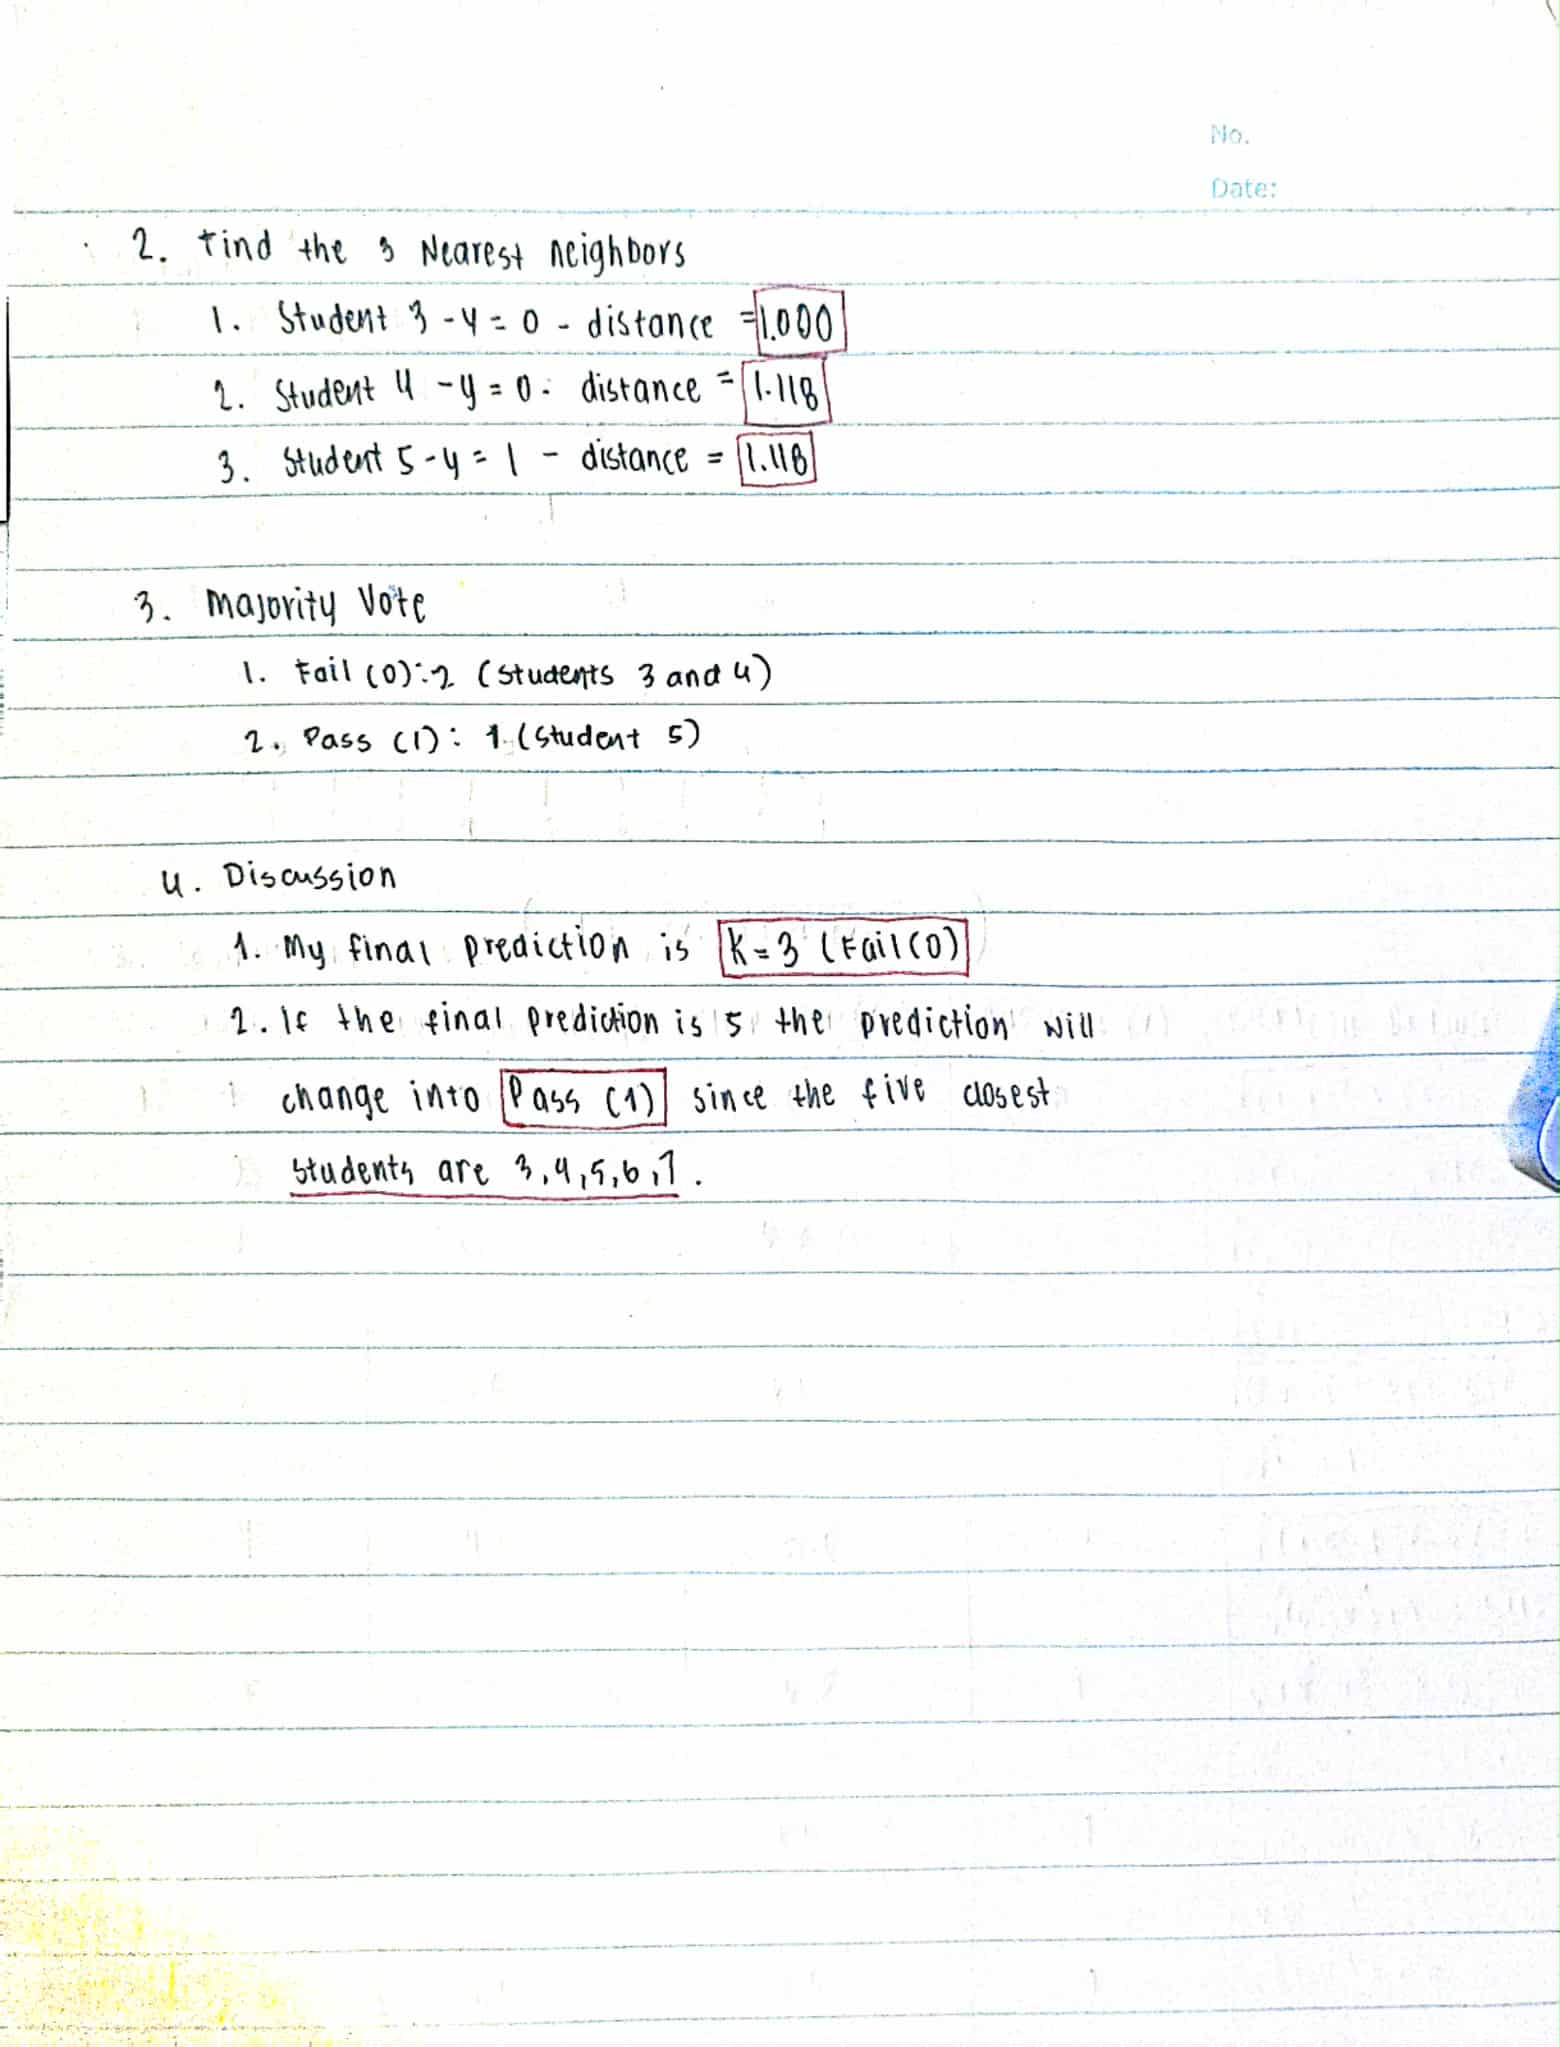 No.
Date:
2. Find the 3 Nearest neighbors
1. Student 3 - y = 0 - distance = 1.000
2. Student 4 - y = 0 - distance = 1.118
3. Student 5 - y = 1 - distance = 1.118
3. Majority Vote
1. Fail (0): 2 (Students 3 and 4)
2. Pass (1): 1 (Student 5)
4. Discussion
1. My final prediction is K = 3 (Fail (0)
2. If the final prediction is 5 the prediction will
change into Pass (1) since the five closest
students are 3,4,5,6,7.